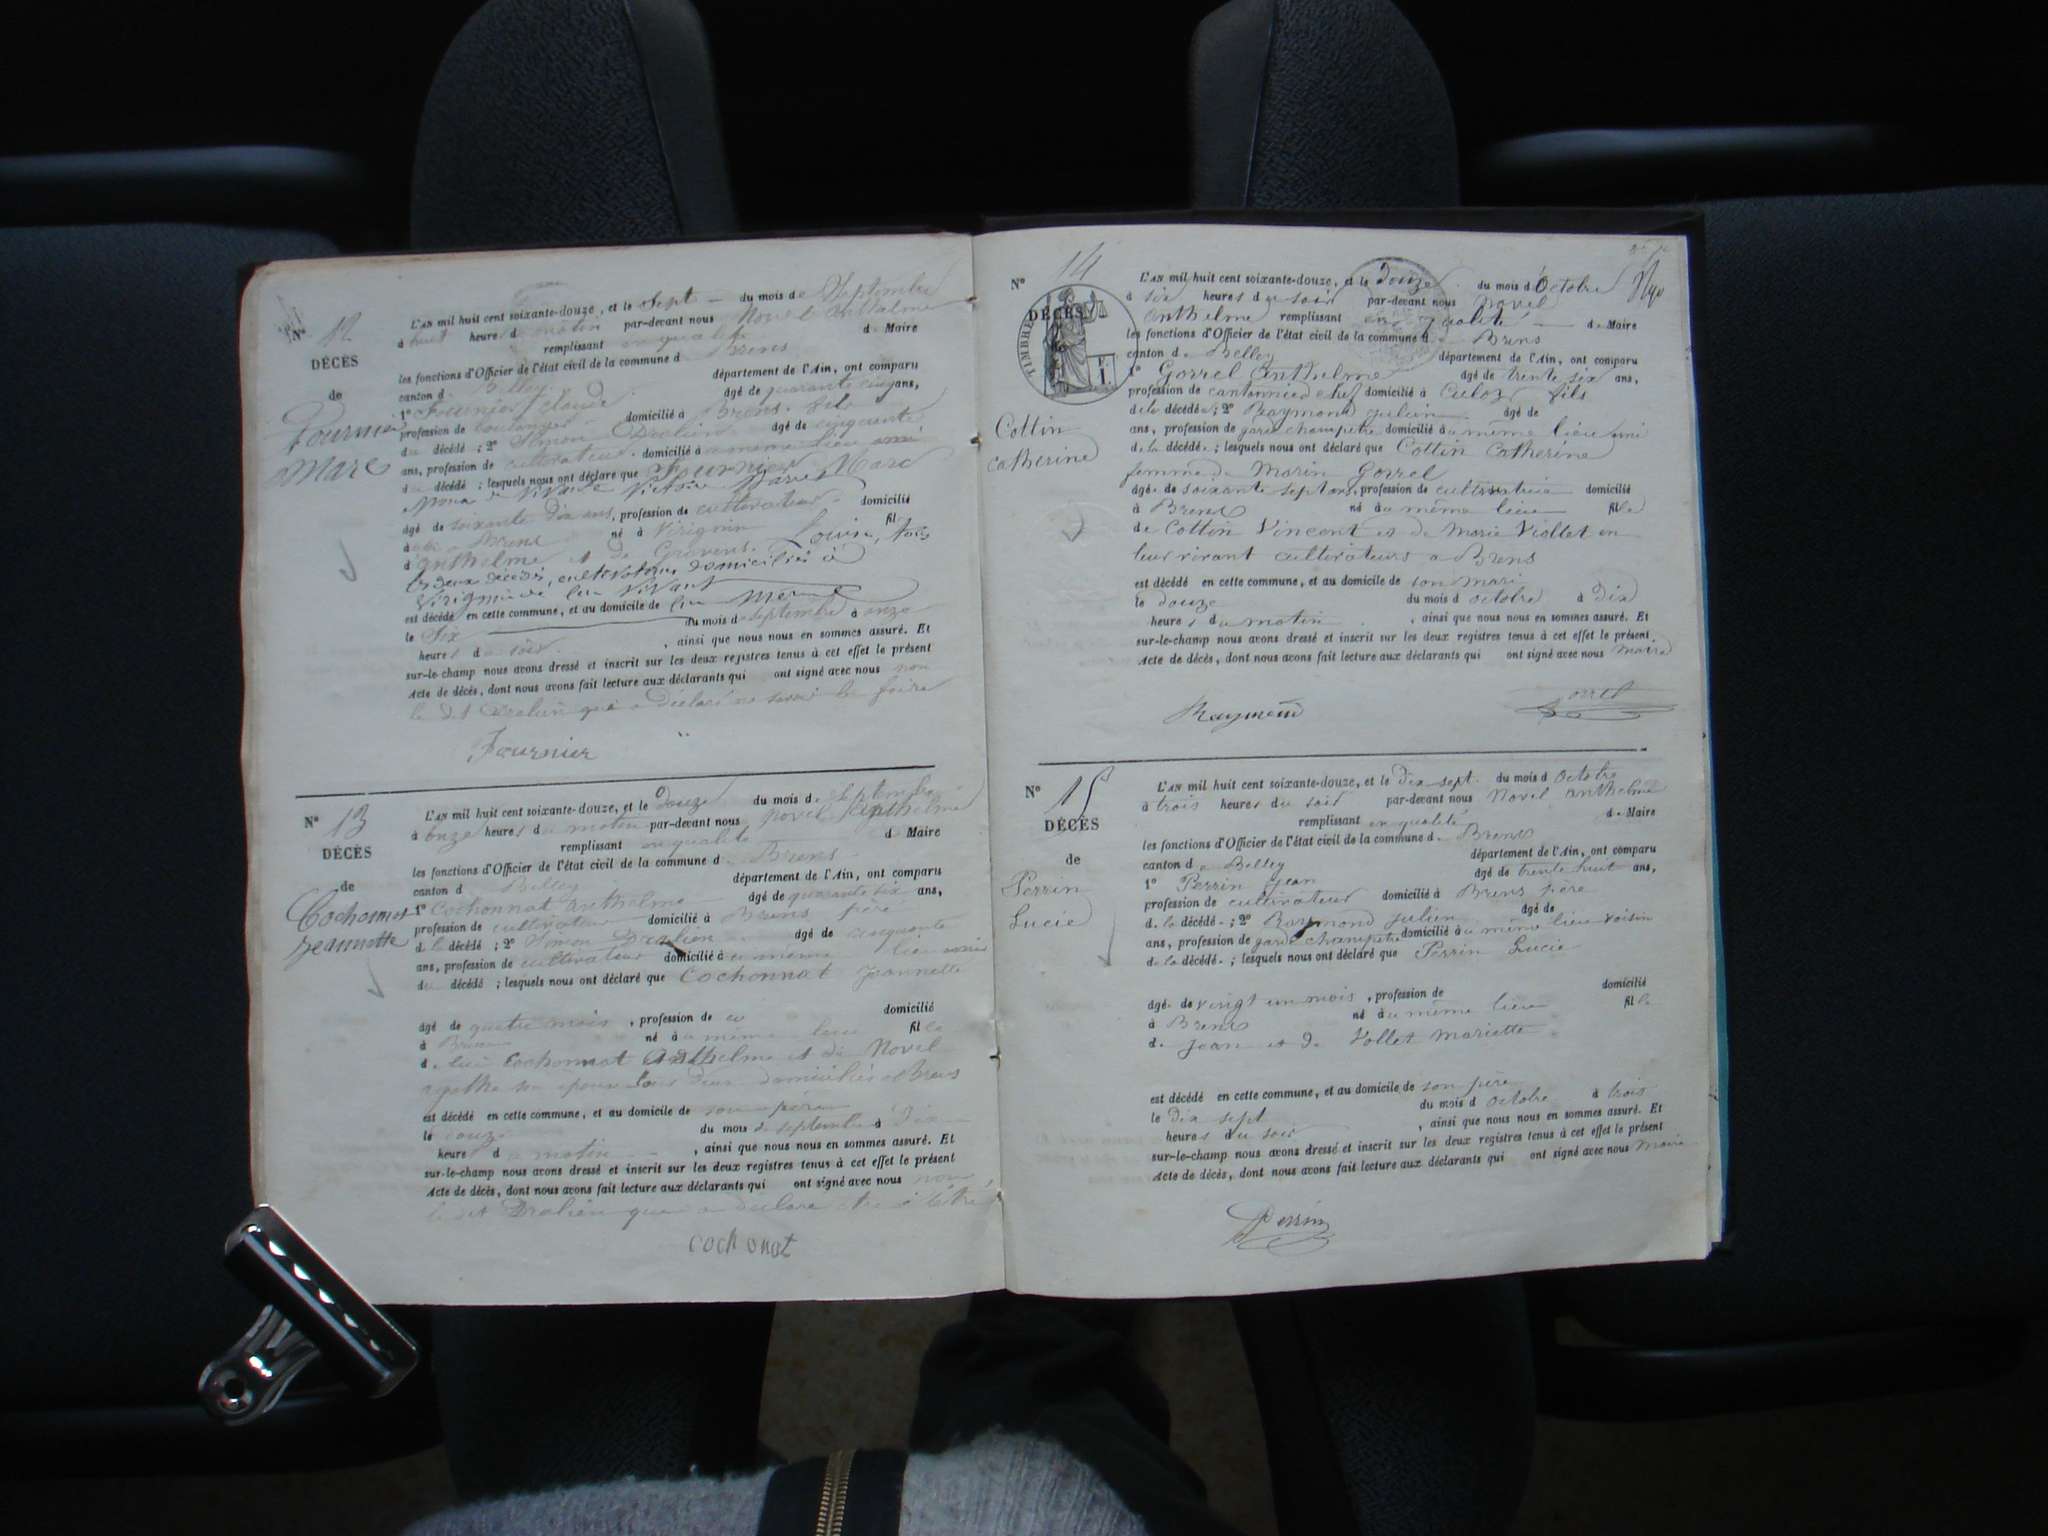 N° 12
DÉCÈS
de
Fournier
Marc
L'AN mil huit cent soixante-douze, et le sept du mois de Septembre
à huit heures du matin par-devant nous Novel Anthelme
remplissant en qualité de Maire
les fonctions d'Officier de l'état civil de la commune de Brens
canton de Belley département de l'Ain, ont comparu
1° Fournier Claude âgé de quarante cinq ans,
profession de domicilié à Brens fils
du décédé ; 2° Simon Dralien âgé de cinquante
ans, profession de cultivateur domicilié à même lieu ami
du décédé ; lesquels nous ont déclaré que Fournier Marc
âgé de soixante dix ans, profession de cultivateur domicilié
à Brens né à Virignin fils
d'anthelme et de Louise, tous
les deux décédés, cultivateurs domiciliés à
Virignin de leur vivant
est décédé en cette commune, et au domicile de lui même
le Six du mois de septembre à onze
heures du soir, ainsi que nous nous en sommes assuré. Et
sur-le-champ nous avons dressé et inscrit sur les deux registres tenus à cet effet le présent
Acte de décès, dont nous avons fait lecture aux déclarants qui ont signé avec nous non
le dit Dralien qui a déclaré ne savoir le faire
Fournier
N° 13
DÉCÈS
de
Cochonnat
Jeannette
L'AN mil huit cent soixante-douze, et le douze du mois de septembre
à onze heures du matin par-devant nous Novel Anthelme
remplissant en qualité de Maire
les fonctions d'Officier de l'état civil de la commune de Brens
canton d Belley département de l'Ain, ont comparu
1° Cochonnat Anthelme âgé de quarante six ans,
profession de cultivateur domicilié à Brens père
de la décédé ; 2° Simon Dralien âgé de cinquante
ans, profession de cultivateur domicilié à même lieu voisin
du décédé ; lesquels nous ont déclaré que Cochonnat Jeannette
âgé de quatre mois, profession de domicilié
à Brens né au même lieu fille
de Cochonnat Anthelme et de Novel
agathe son épouse tous deux domiciliés à Brens
est décédé en cette commune, et au domicile de son père
le douze du mois de septembre à Dix
heures du matin, ainsi que nous nous en sommes assuré. Et
sur-le-champ nous avons dressé et inscrit sur les deux registres tenus à cet effet le présent
Acte de décès, dont nous avons fait lecture aux déclarants qui ont signé avec nous non
le dit Dralien qui a déclaré être illétré
cochonat
N° 14
DÉCÈS
TIMBRE
F.
1.
Cottin
Catherine
L'AN mil huit cent soixante-douze, et le douze du mois d'Octobre
à six heures du soir par-devant nous Novel
Anthelme remplissant en qualité de Maire
les fonctions d'Officier de l'état civil de la commune d Brens
canton de Belley département de l'Ain, ont comparu
1° Gorrel Anthelme âgé de trente six ans,
profession de cantonnier chef domicilié à Culoz fils
de la décédée ; 2° Raymond Julien âgé de
ans, profession de garde champêtre domicilié au même lieu ami
de la décédé ; lesquels nous ont déclaré que Cottin Catherine
femme de Marin Gorrel
âgé de soixante sept ans, profession de cultivatrice domicilié
à Brens né au même lieu fille
de Cottin Vincent et de Marie Viollet en
leur vivant cultivateurs à Brens
est décédé en cette commune, et au domicile de son mari
le douze du mois d octobre à Dix
heures du matin, ainsi que nous nous en sommes assuré. Et
sur-le-champ nous avons dressé et inscrit sur les deux registres tenus à cet effet le présent
Acte de décès, dont nous avons fait lecture aux déclarants qui ont signé avec nous maire
Raymond Gorrel
N° 15
DÉCÈS
de
Perrin
Lucie
L'AN mil huit cent soixante-douze, et le dix sept du mois d Octobre
à trois heures du soir par-devant nous Novel Anthelme
remplissant en qualité de Maire
les fonctions d'Officier de l'état civil de la commune de Brens
canton d Belley département de l'Ain, ont comparu
1° Perrin Jean âgé de trente huit ans,
profession de cultivateur domicilié à Brens père
de la décédé ; 2° Raymond Julien âgé de
ans, profession de garde champêtre domicilié au même lieu voisin
de la décédé ; lesquels nous ont déclaré que Perrin Lucie
âgé de vingt un mois, profession de domicilié
à Brens né au même lieu fille
de Jean et de Vollet Mariette
est décédé en cette commune, et au domicile de son père
le dix sept du mois d octobre à trois
heures du soir, ainsi que nous nous en sommes assuré. Et
sur-le-champ nous avons dressé et inscrit sur les deux registres tenus à cet effet le présent
Acte de décès, dont nous avons fait lecture aux déclarants qui ont signé avec nous maire
Perrin